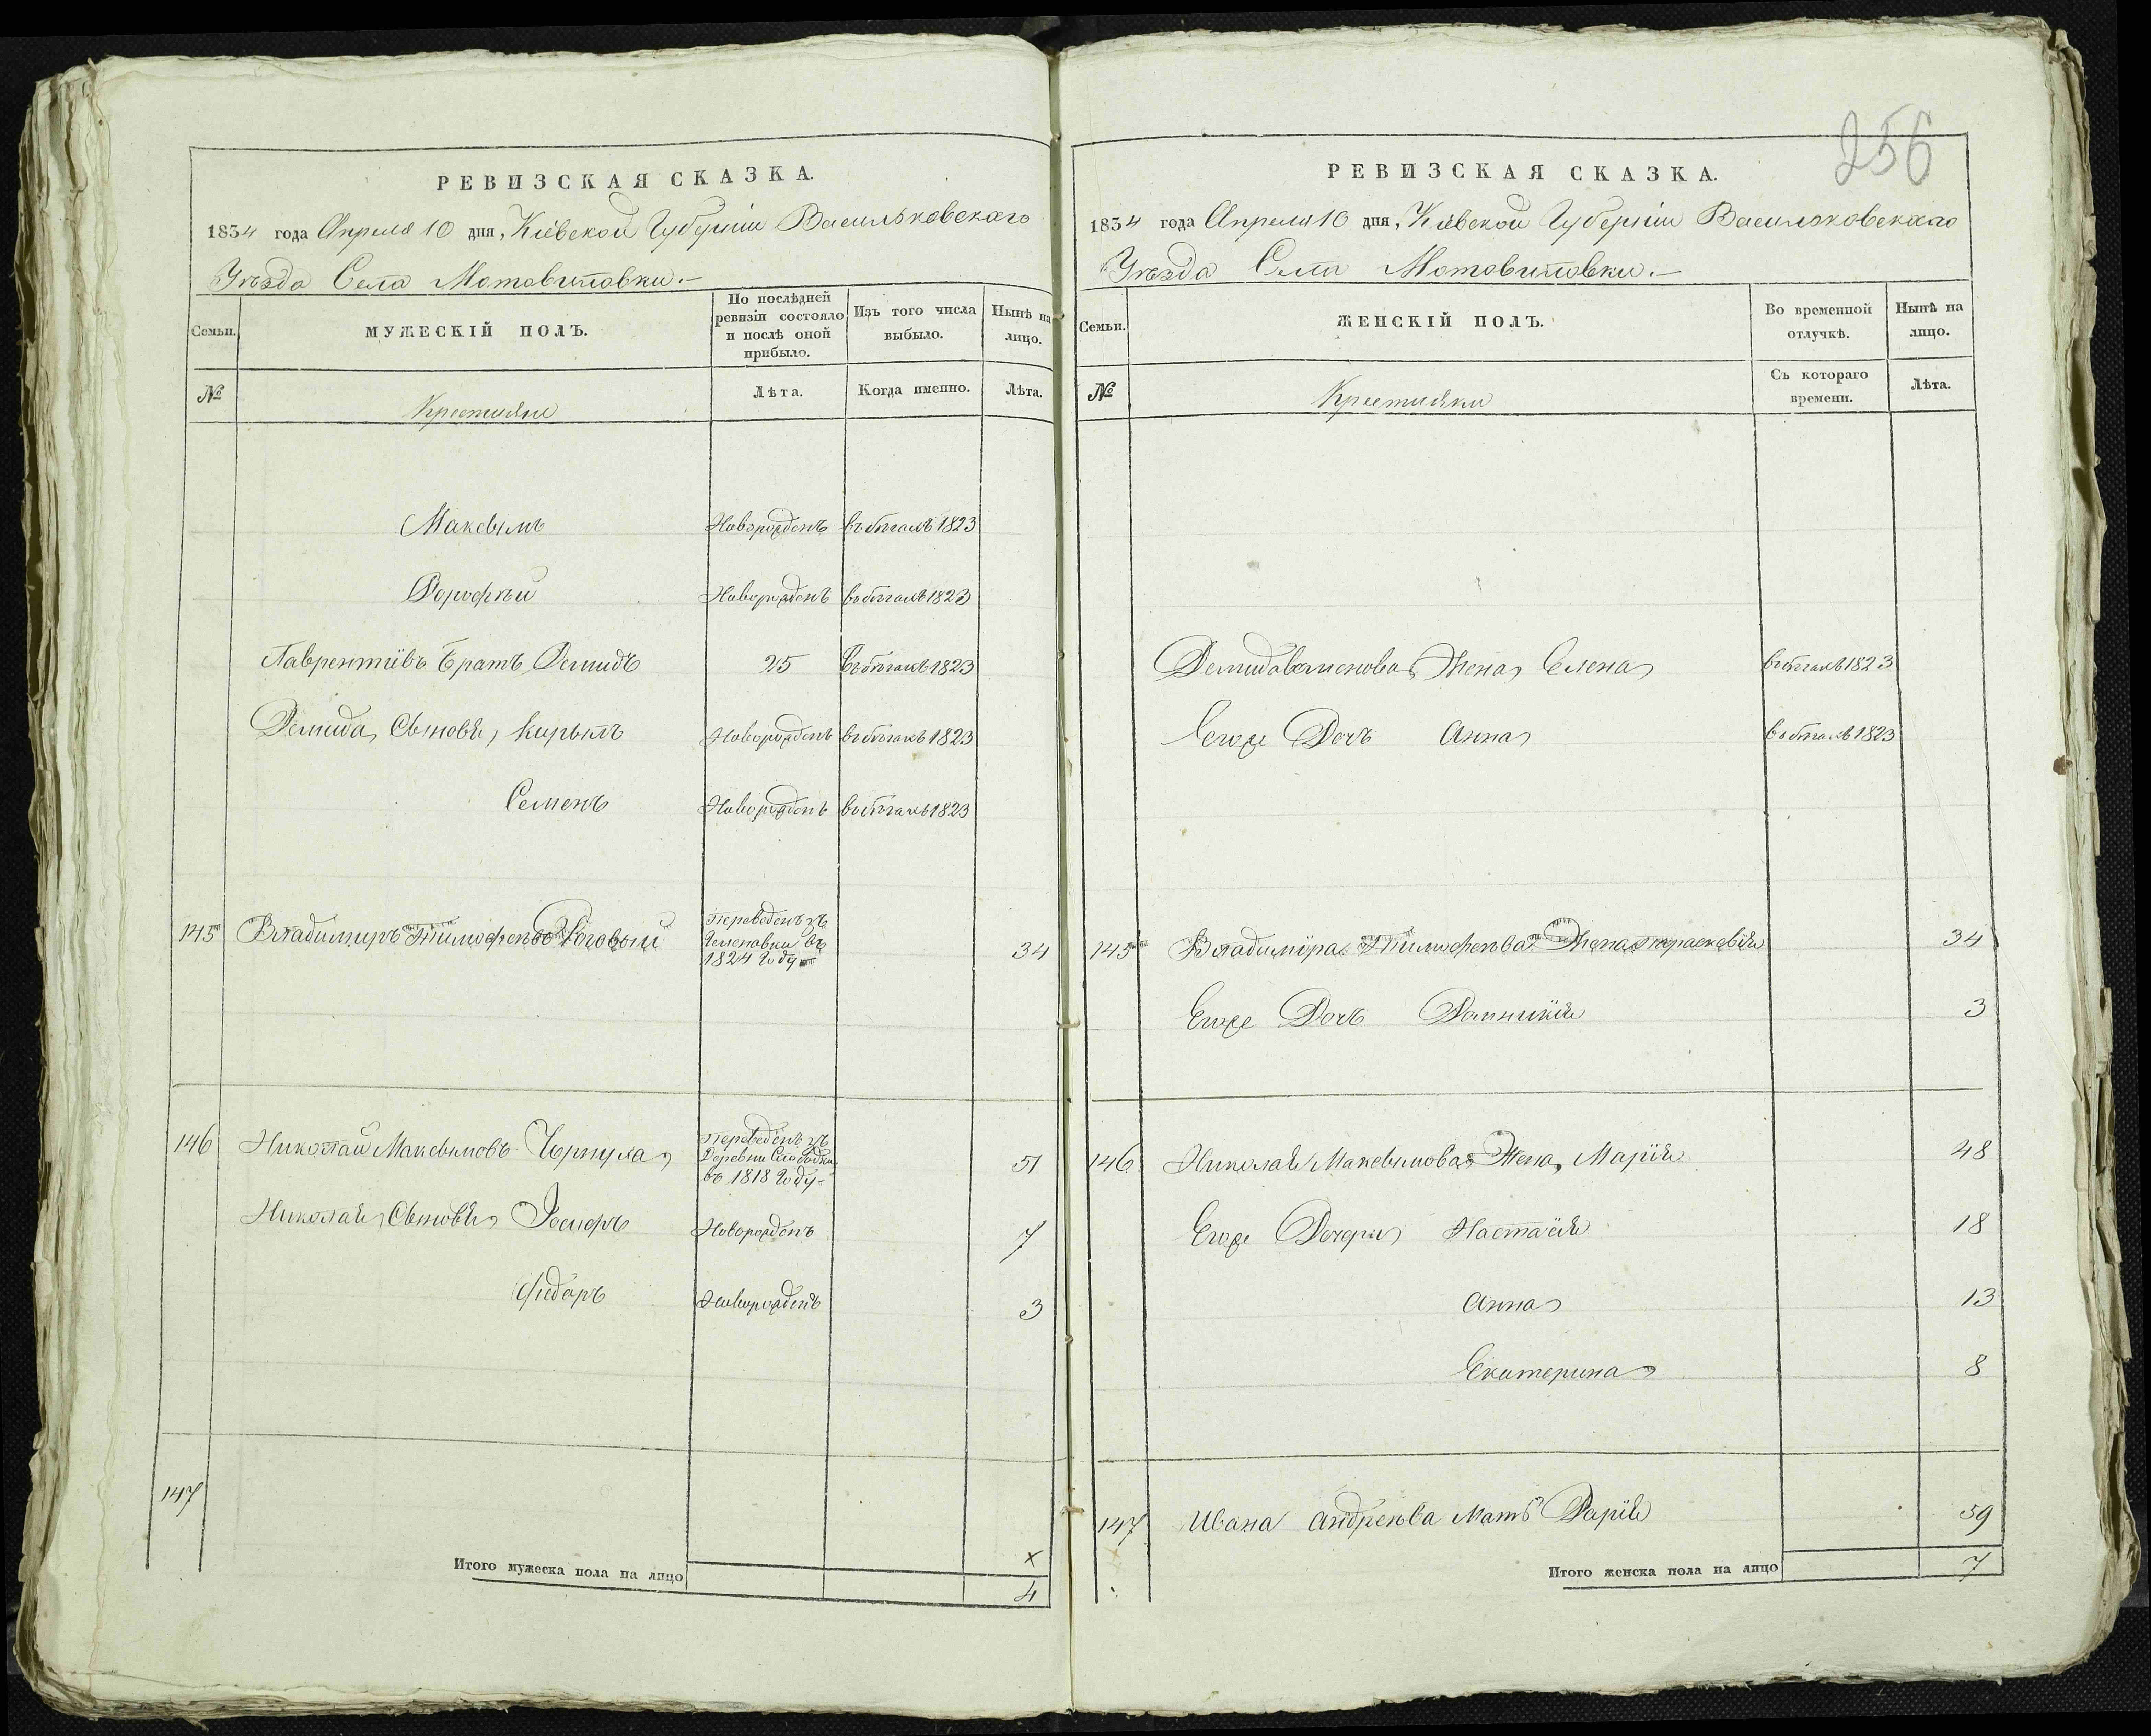 РЕВИЗСКАЯ СКАЗКА.
1834 года Апреля 10 дня, Кіевской Губерніи Васильковскаго
Уѣзда Села Мотовиловки.-
Семьи.
МУЖЕСКІЙ ПОЛЪ.
По послѣдней
ревизіи состояло
и послѣ оной
прибыло.
Изъ того числа
выбыло.
Нынѣ на
лицо.
№
Крестьяне
Лѣта.
Когда именно.
Лѣта.
Максымъ Новорожденъ въ бѣгахъ 1823
Дорофѣй Новорожденъ въ бѣгахъ 1823
Лаврентіевъ Братъ Демидъ 25 въ бѣгахъ 1823
Демида Сыновья Кирылъ Новорожденъ въ бѣгахъ 1823
Семенъ Новорожденъ въ бѣгахъ 1823
145 Владимиръ Тимофеевъ Роговый 34
Переведенъ зъ
въ
1824 Году
146 Николай Максымовъ 51
Переведенъ зъ
Деревни Слободки
въ 1818 Году-
Николая Сыновья Новорожденъ 7
Федоръ Новорожденъ 3
147
Итого мужеска пола на лицо 4
256
РЕВИЗСКАЯ СКАЗКА.
1834 года Апреля 10 дня, Кіевской Губерніи Васильковскаго
Уѣзда Села Мотовиловки.-
Семьи.
ЖЕНСКІЙ ПОЛЪ.
Во временной
отлучкѣ.
Нынѣ на
лицо.
№
Крестьянки
Съ котораго
времени.
Лѣта.
Жена Елена въ бѣгахъ 1823
Егоже Дочь Анна въ бѣгахъ 1823
145 Владиміра Тимофеева Жена Параскевія 34
Егоже Дочь Домникія 3
146 Николая Максымова Жена Марія 48
Егоже Дочери Настасія 18
Анна 13
Екатерина 8
147 Ивана Андреева Мать Дарія 59
Итого женска пола на лицо 7